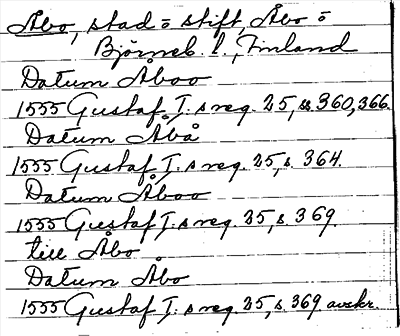 Åbo, stad o stift, Åbo o
Björneb. l., Finland
Datum Åboo
1555 Gustaf I:s reg. 25, ss. 360, 366.
Datum Åbå
1555 Gustaf I:s reg. 25, s. 364.
Datum Åboo
1555 Gustaf I:s reg. 25, s. 369.
till Åbo
Datum Åbo
1555 Gustaf I:s reg. 25, s. 369 avskr.